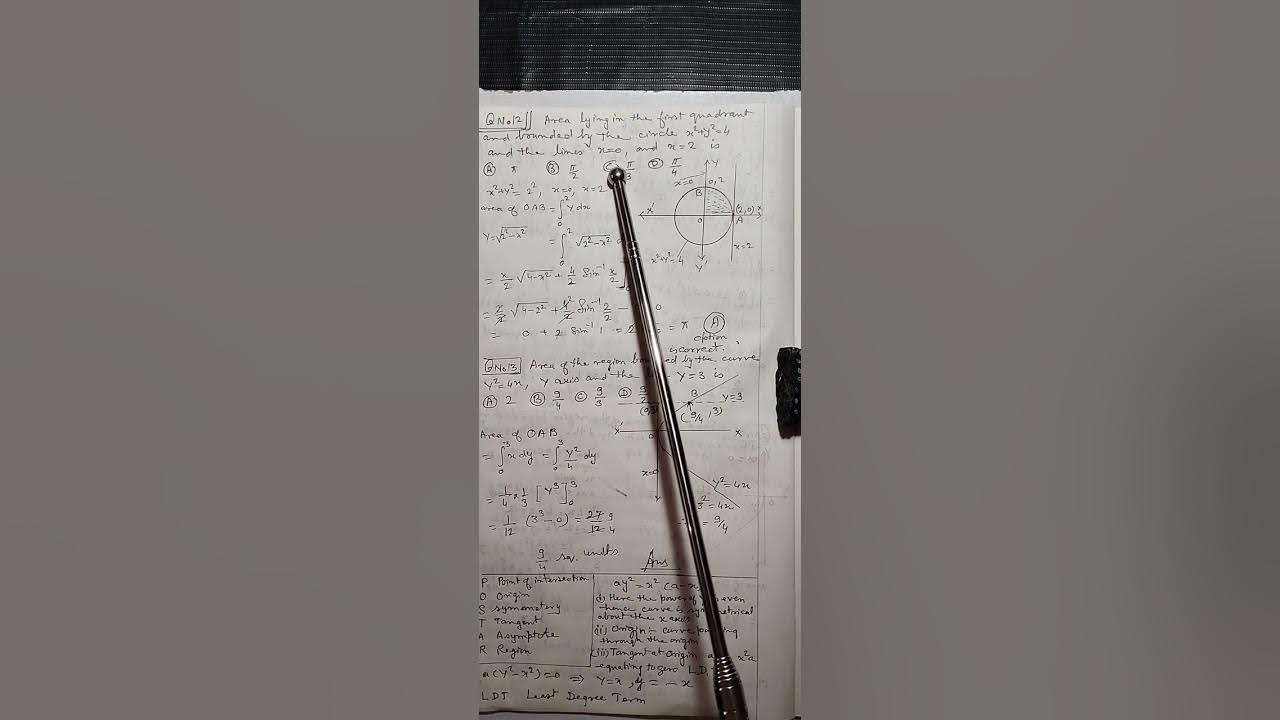 Q No 12 Area lying in the first quadrant
and bounded by the circle x²+y²=4
and the lines x=0, and x=2 is
(A) π (B) π/2 (C) π/3 (D) π/4
x²+y²=2², x=0, x=2
area of OAB = ∫₀² Y dx
Y=√2²-x² = ∫₀² √2²-x²
= x/2 √4-x² + 4/2 Sin⁻¹ x/2
= 2/2 √4-2² + 4/2 Sin⁻¹ 2/2 — 0
= 0 + 2 Sin⁻¹ 1 = 2 = π (A)
option
is correct.
Y
x=0
0,2
B
X'
(2,0) x
O
A
x=2
x²+y²=4
Y'
Q No 13 Area of the region by the curve
Y²=4x, Y axis and the Y=3 is
(A) 2 (B) 9/4 (C) 9/3 (D) 9/2
B
Y=3
(9/4, 3)
X'
O
X
x=0
Y²=4x
3²=4x
= 9/4
Area of OAB
= ∫₀³ x dy = ∫₀³ Y²/4 dy
= 1/4 × 1/3 [Y³]₀³
= 1/12 (3³-0) = 27/12 9/4
9/4 sq. units Ans
P Point of intersection
O Origin
S symemetery
T Tangent
A Asymptote
R Region
ay² = x² (a-x
(i) Here the power of even
hence curve is symmetrical
about the x axis
(ii) Origin:- curve passing
through the origin
(iii) Tangent at origin x²a
equating to zero L.D.
a(Y²-x²)=0 ⇒ Y=x, y = - x
LDT Least Degree Term